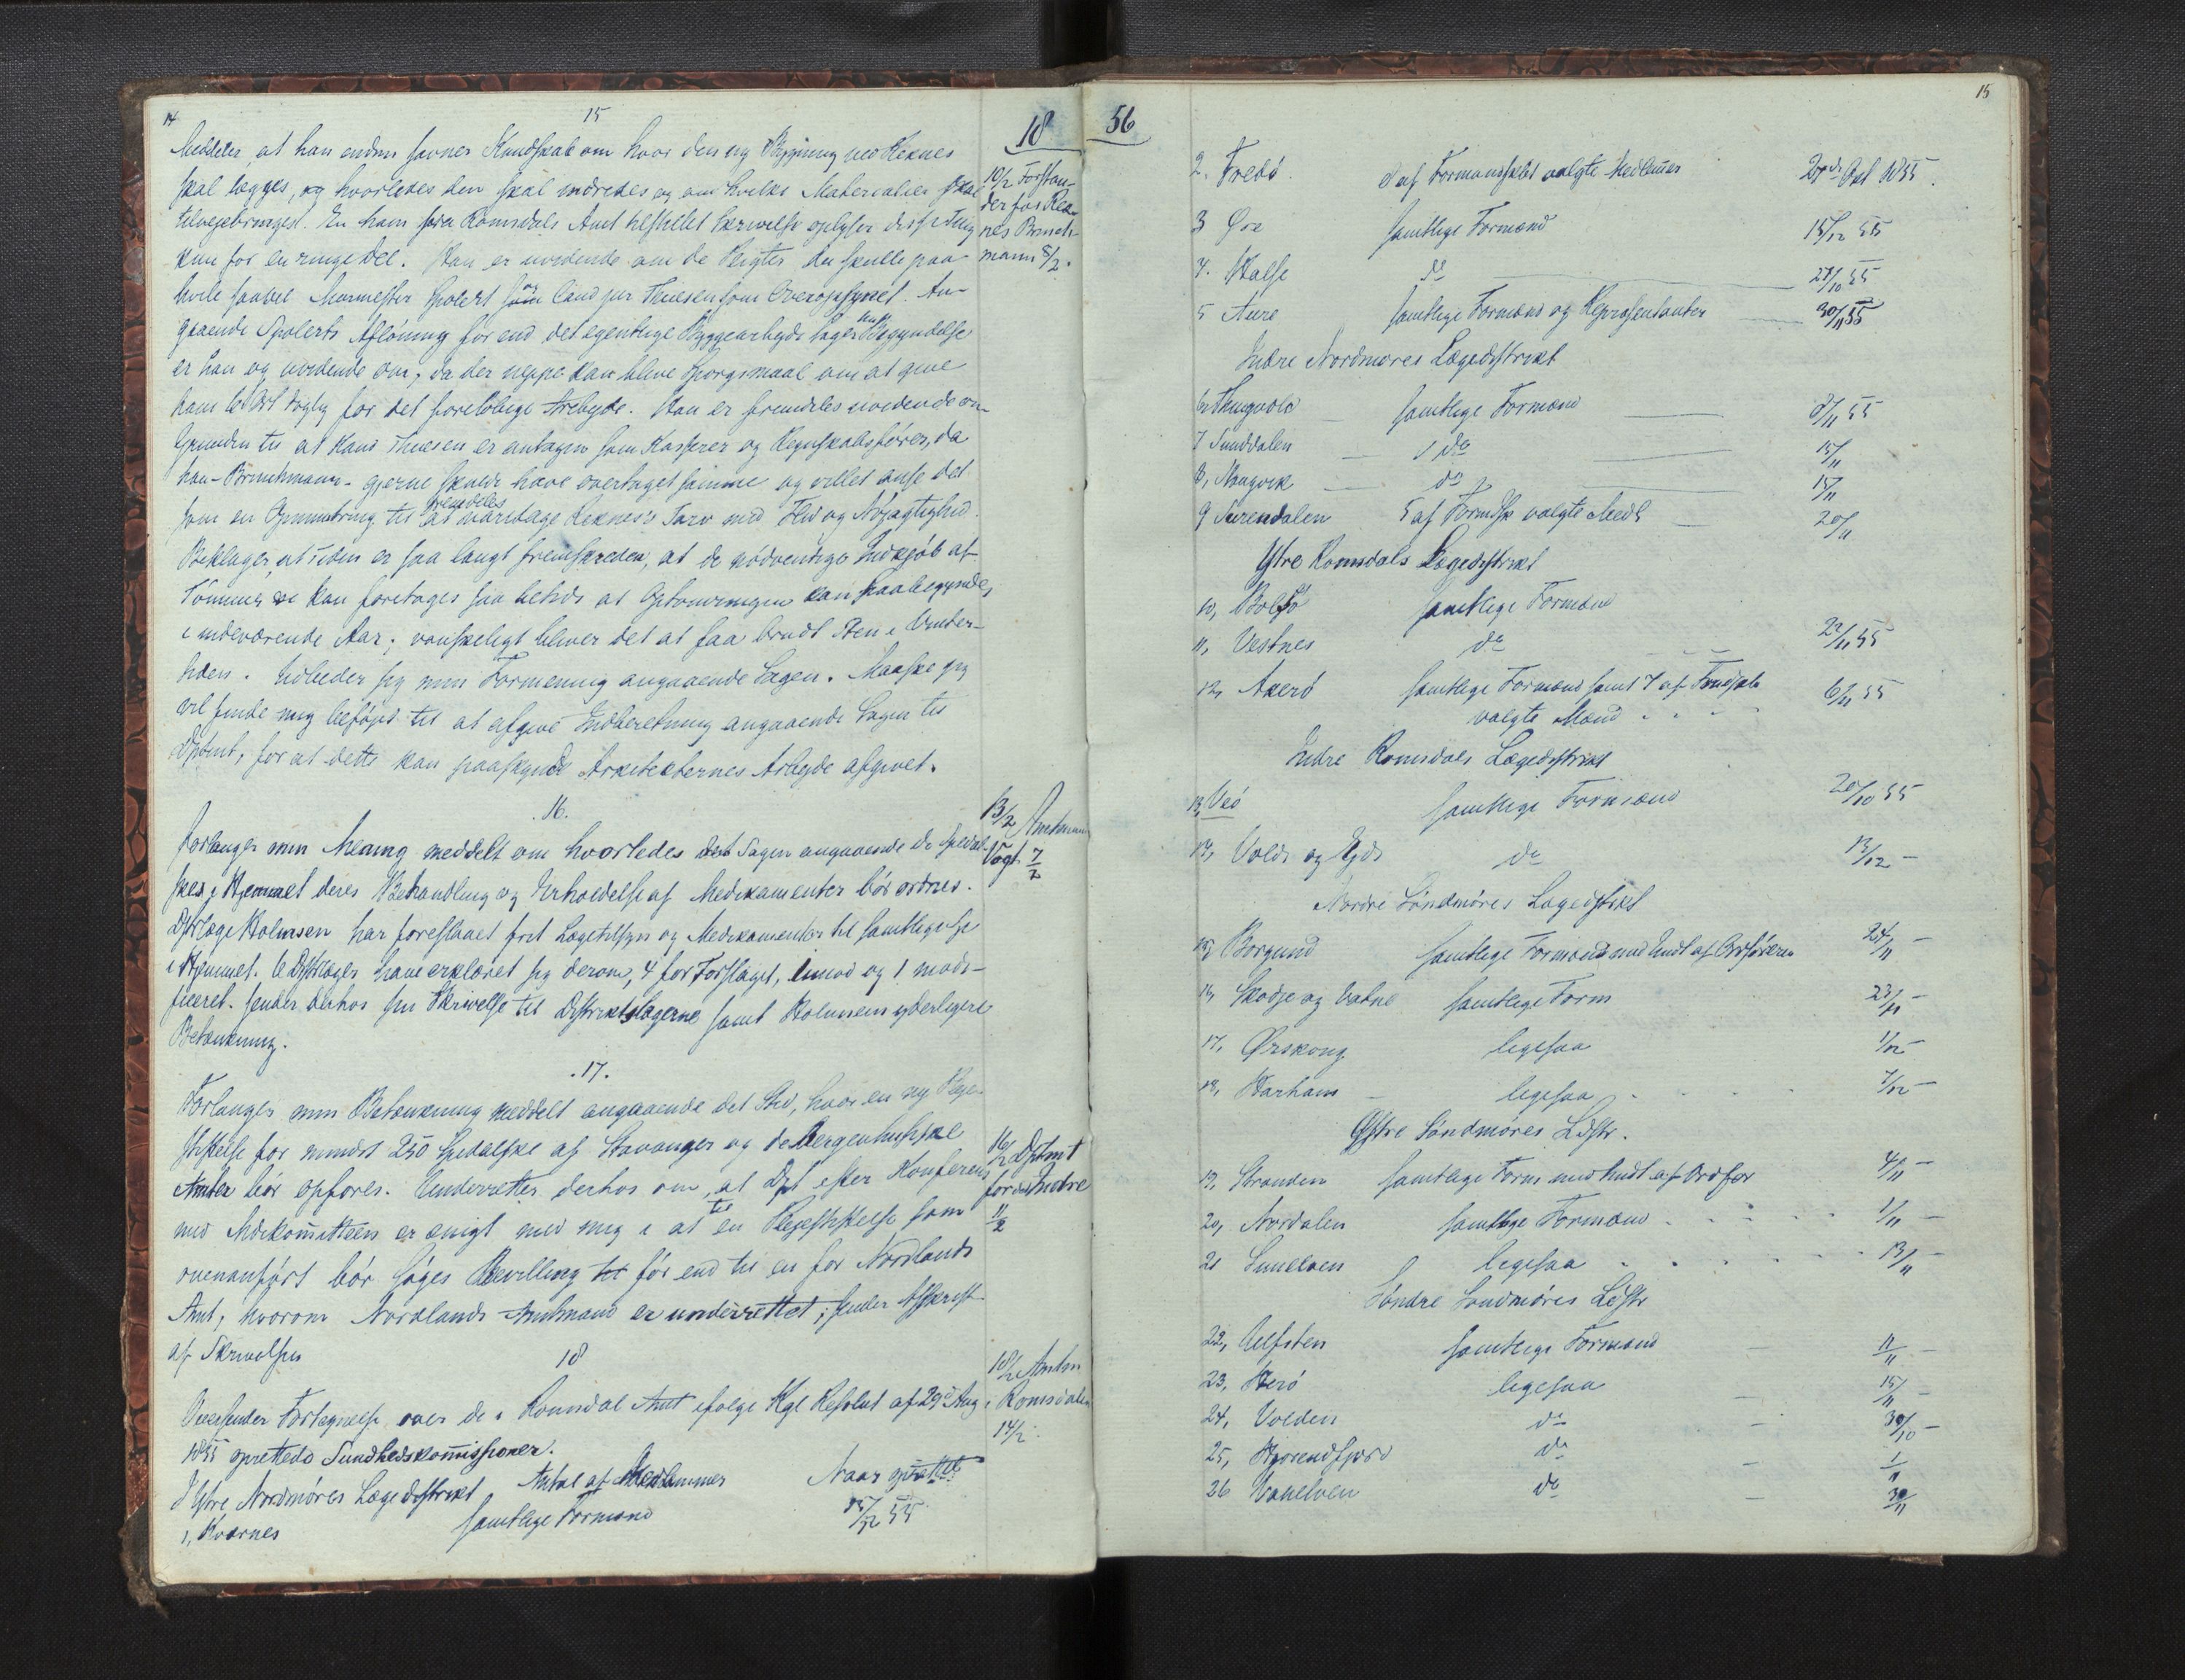 14
15
18
Meddeler at han endnu savner Kundskab om hvor den ny Bygning ved Reknes
skal lægges, og hvorledes den skal indredes og om hvilke Materialier skal
tilvejebringes. En ham fra Romsdals Amt tilstillet Skrivelse oplyser disse Ting
kun for en ringe Del. Han er uvidende om de Pligter der skulle paa-
hvile saavel Murmester Spolert som Cand jur Thuesen som Overopsynet. An-
gaaende Spolerts Aflønning før end det egentlige Byggearbejde tager sin Begyndelse
er han og uvidende om, da der neppe kan blive Spørgsmaal om at give
ham daglig for det foreløbige Arbejde. Han er fremdeles uvidende om
Grunden til at Kand Thuesen er antagen som Kasserer og Regnskabsfører, da
han - Brinchmann - gjerne skulde have overtaget samme og villet anse det
som en Opmuntring til fremdeles at varetage Reknes's Tarv med Flid og Nøjagtighed.
Beklager, at Tiden er saa langt fremskreden, at de nødvendige Indkjøb af
Tømmer ei kan foretages saa betids at Optømringen kan paabegyndes
i indeværende Aar; vanskeligt bliver det at faa brudt Sten i Vinter-
tiden. Udbeder sig min Formening angaaende Sagen. Maaske jeg
vil finde mig beføjet til at afgive Indberetning angaaende Sagen til
Dptmt, for at dette kan paaskynde Arkitekternes Arbejde afgivet.
10/2 Forstan-
der for Rek-
nes Brinch-
mann 5/2.
.16.
Forlanger min Mening meddelt om hvorledes Sagen angaaende de spedal-
skes i Hjemmet deres Behandling og Erholdelse af Medikamenter bør ordnes.
Dstrlæge Holmsen har foreslaaet frit Lægetilsyn og Medikamenter til samtlige Sp
i Hjemmet. 6 Dstrlæger have erklæret sig derom, 4 for Forslaget, 1 imod og 1 modi-
ficeret. Sender derhos sin Skrivelse til Distriktslægerne samt Holmsens yderligere
Betænkning.
13/2 Amtmann
Vogt 7/2
.17.
Forlanger min Betænkning meddelt angaaende det Sted, hvor en ny Pleje-
stiftelse for mindst 250 Spedalske af Stavanger og de Bergenhusiske
Amter bør opføres. Underretter derhos om, at Dpt efter Konferens
med Mdkomitteen er enigt med mig i at til en Plejestiftelse som
ovenanført bør søges Bevilling før end til en for Nordlands
Amt, hvorom Nordlands Amtmand er underrettet; sender Afskrift
af Skrivelsen
16/2 Dptmt
for det Indre
11/2
18
Oversender Fortegnelse over de i Romsdal Amt ifølge Kgl Resolut af 29de Aug
1855 oprettede Sundhedskommissioner.
18/2 Amtm
i Romsdalen
14/2.
I Ytre Nordmøres Lægedistrikt Antal af Medlemmer Naar oprettet
1, Kvernes samtlige Formænd 15/12 55
56
15
2. Fredø af Formandskbt valgte Medlemmer Okt 1855.
3 Øre samtlige Formænd 15/12 55
4. Halse do 27/10 55
5 Aure samtlige Formænd og Repræsentanter 30/11 55
Indre Nordmøres Lægedistrikt
6, Thingvold samtlige Formænd 8/11 55
7 Sunddalen do 15/11
8, Stangvik do 15/11
9 Surendalen 5 af Formdsk valgte Medl 20/11
Ytre Romsdals Lægedistrikt
10, Bolsø samtlige Formænd
11, Vestnes do 22/11 55
12, Akerø samtlige Formænd samt 7 af Fmdskb 6/11 55
valgte Mænd
Indre Romsdals Lægedistrikt
13, Veø samtlige Formænd 20/10 55
14, Volds og Ejds do 13/12 -
Nordre Søndmøres Lægedistrikt
15, Borgund samtlige Formænd med Undt af Ordføreren 24/11 -
16, Skodje og Vatne samtlige Form 23/11 -
17, Ørskoug ligesaa 1/12 -
18, Harham ligesaa 7/12 -
Østre Søndmøres Ldstr.
19, Stranden samtlige Form med Undt af Ordfør 4/11 -
20, Nordalen samtlige Formænd 1/11 -
21 Sunelven ligesaa 13/11 -
Søndre Søndmøres Ldstr
22, Ulfsten samtlige Formænd 11/11 -
23, Herø ligesaa 15/11 -
24, Volden do 30/10 -
25, Hjørendfjord do 1/11
26 Vanelven do 30/11